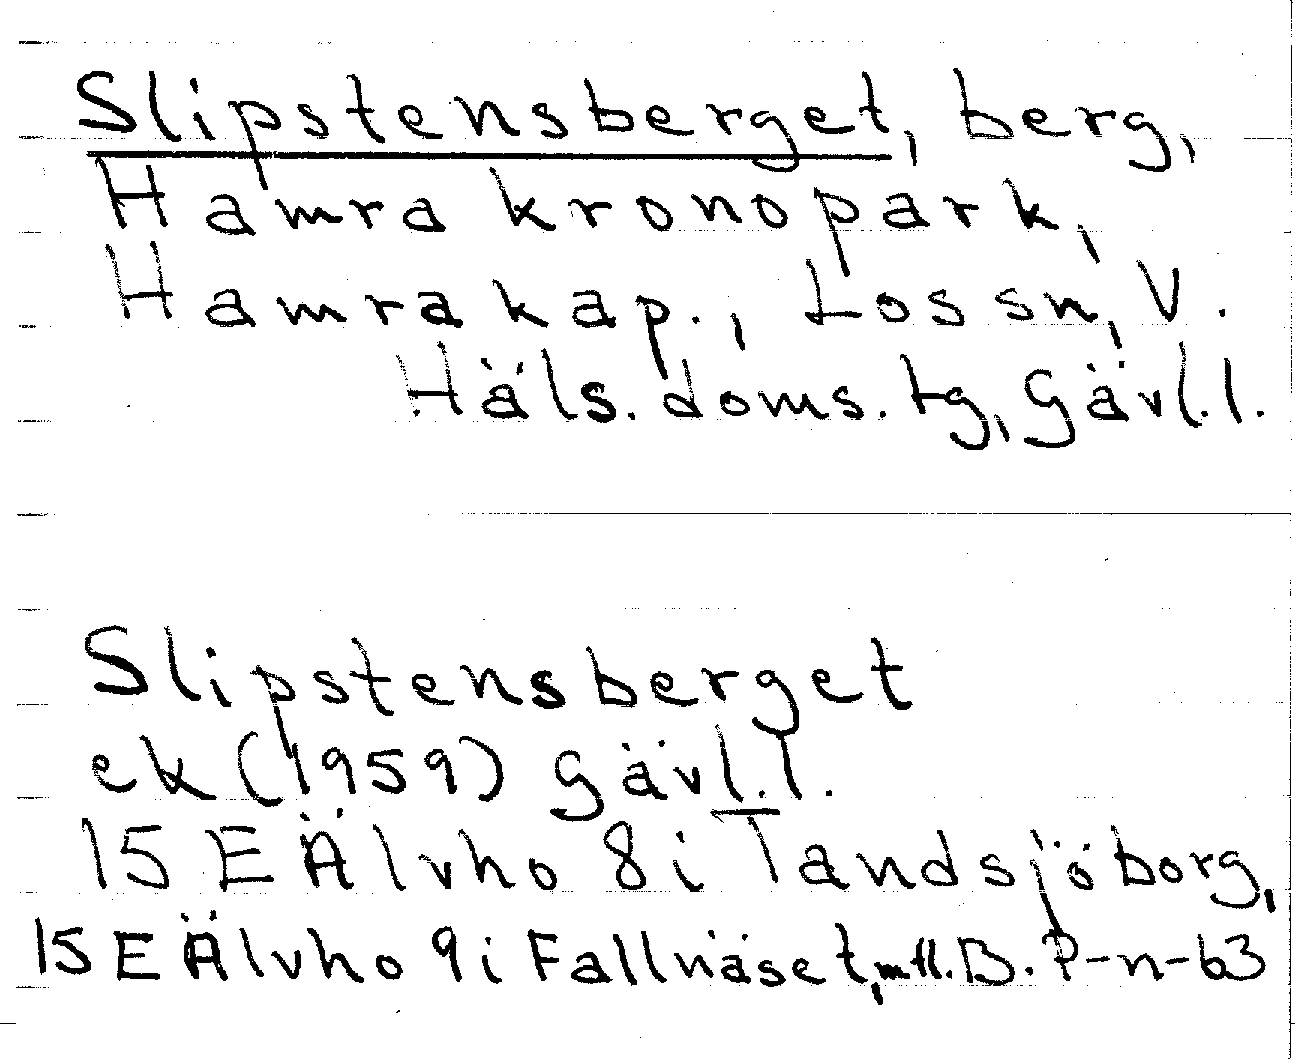 Slipstensberget, berg,
Hamra kronopark,
Hamra kap., Los sn, V.
Häls. doms. tg, Gävl. l.
Slipstensberget
ek (1959) Gävl. l.
15 E Älvho 8i Tandsjöborg,
15 E Älvho 9i Fallnäset, m fl. B. P-n-63